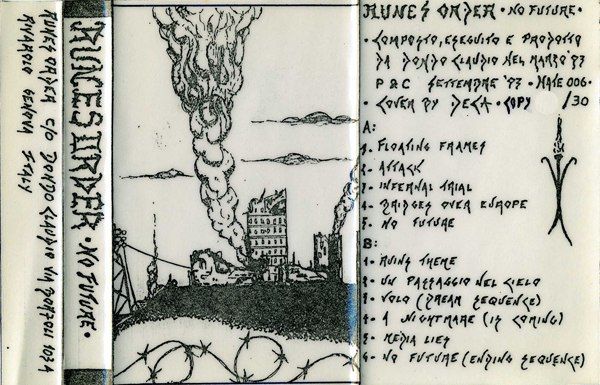 RUNES ORDER C/O DONDO CLAUDIO VIA
RIVAROLO GENOVA ITALY
RUNES ORDER • NO FUTURE •
RUNES ORDER • NO FUTURE •
• COMPOSTO, ESEGUITO E PRODOTTO
DA DONDO CLAUDIO NEL MARZO '93
P & C SETTEMBRE '93 • HATE 006 •
• COVER BY DECA • COPY /30
A:
1. FLOATING FRAMES
2. ATTACK
3. INFERNAL TRIAL
4. BRIDGES OVER EUROPE
5. NO FUTURE
B:
1. RUINS THEME
2. UN PASSAGGIO NEL CIELO
3. VOLO (DREAM SEQUENCE)
4. A NIGHTMARE (IS COMING)
5. MEDIA LIES
6. NO FUTURE (ENDING SEQUENCE)